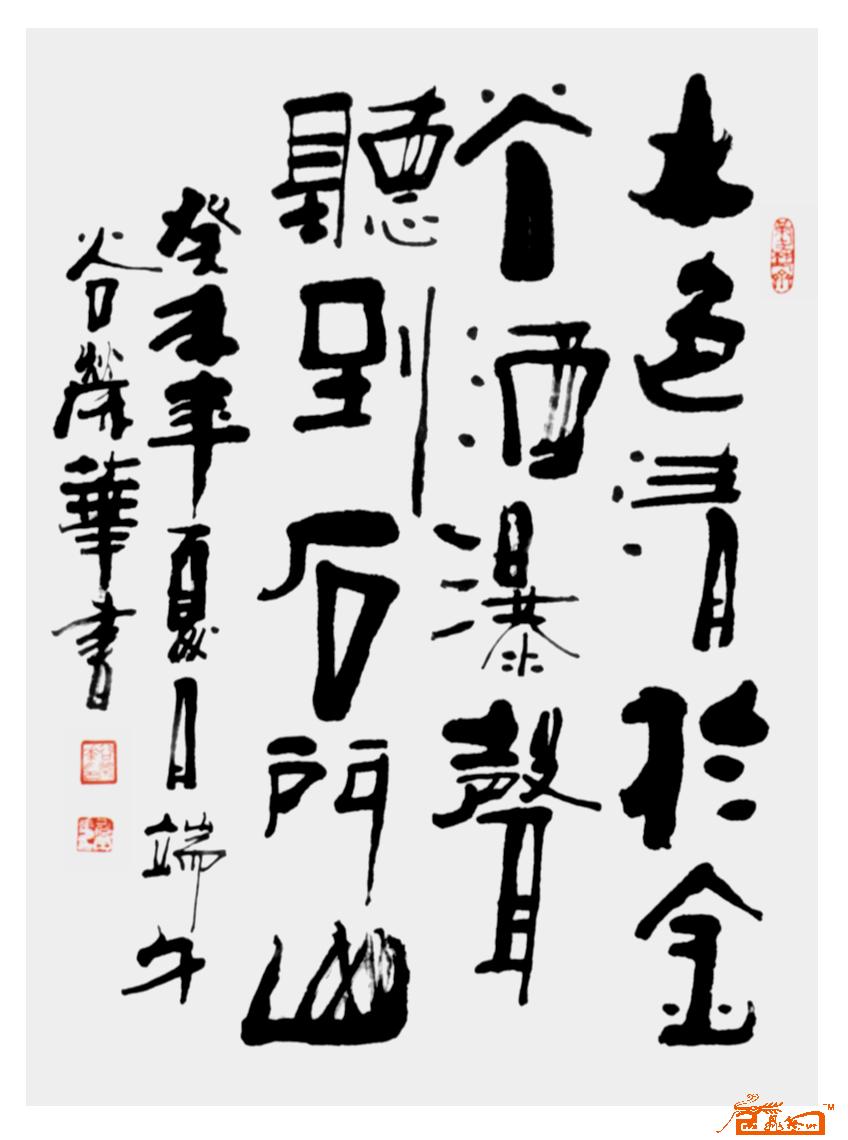 色清於金
谷酒瀑聲
聽到石門山
癸未年夏月端午
谷榮華書